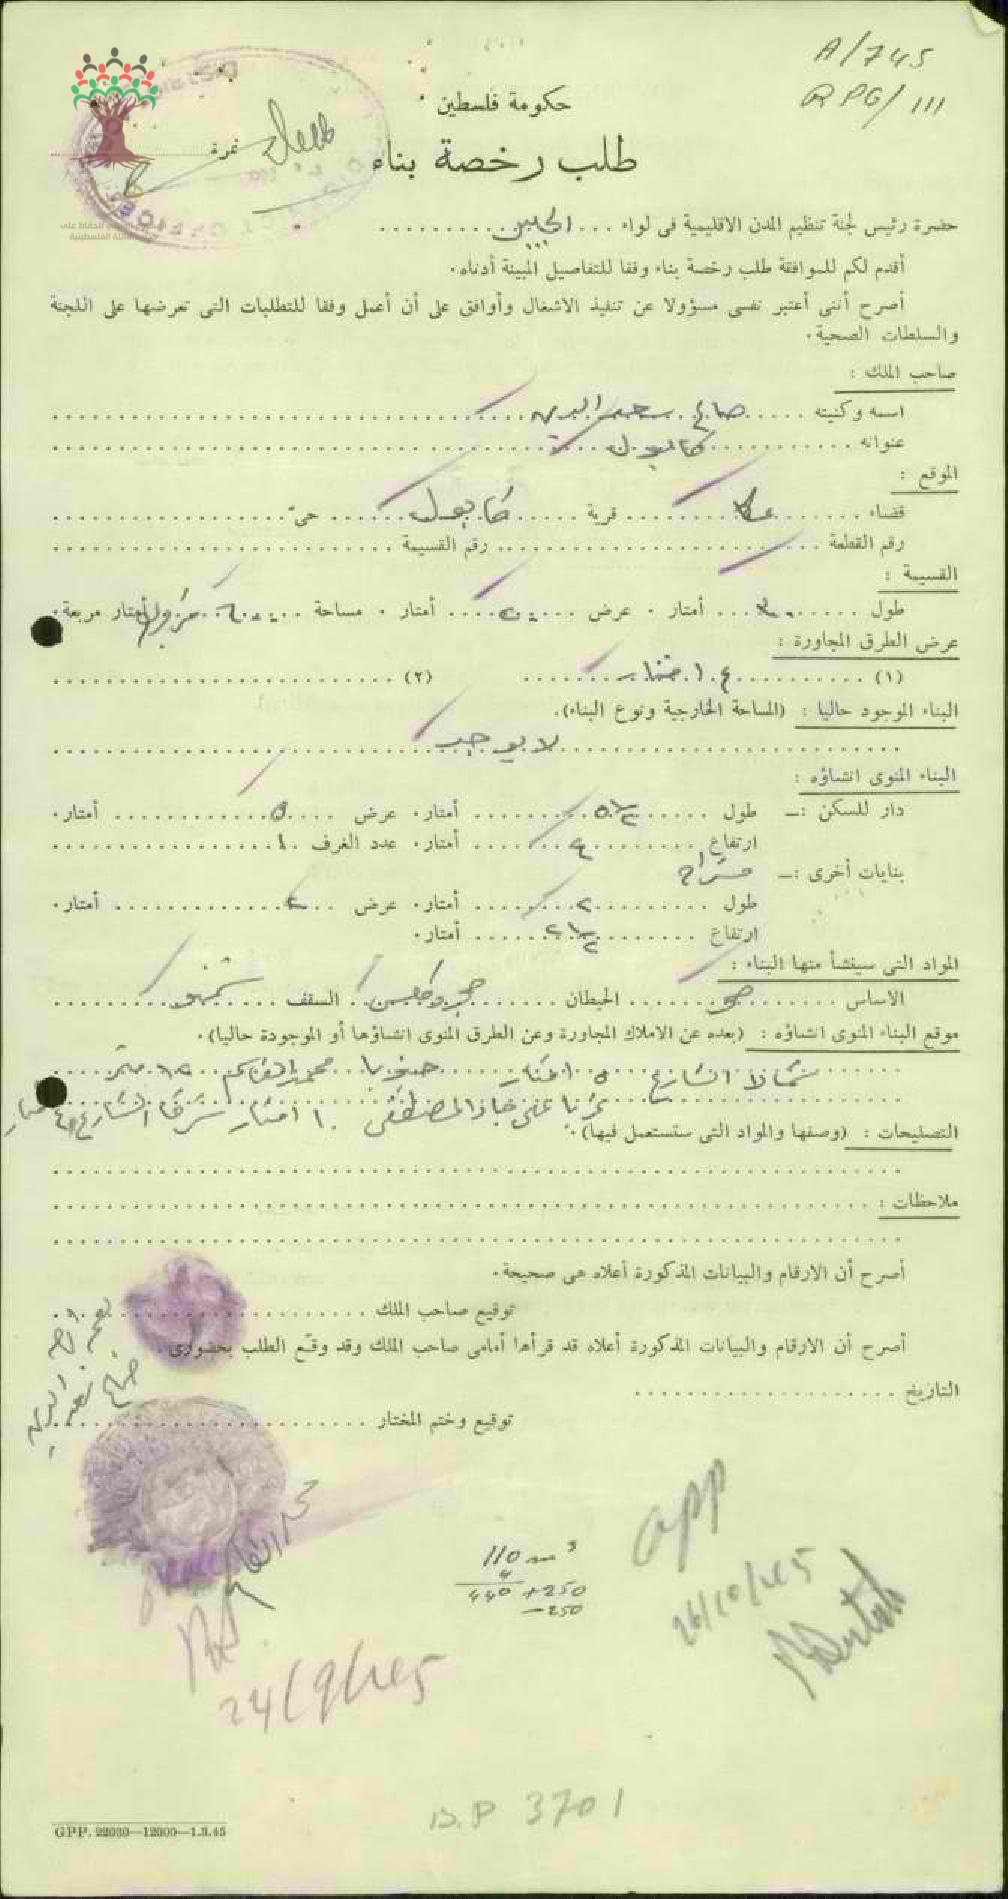 A/745
RPG/111
حكومة فلسطين
نمرة
طلب رخصة بناء
حضرة رئيس لجنة تنظيم المدن الاقليمية فى لواء ... الجليل
أقدم لكم للموافقة طلب رخصة بناء وفقا للتفاصيل المبينة أدناه.
أصرح أننى أعتبر نفسى مسؤولا عن تنفيذ الاشغال وأوافق على أن أعمل وفقا للتطلبات التى تعرضها على اللجنة
والسلطات الصحية.
صاحب الملك :
اسمه وكنيته ..... صالح سعد الدين
عنوانه ..... كابول
الموقع :
قضاء ..... عكا ..... قرية ..... كابول ..... حىّ
رقم القطعة ..... رقم القسيمة .....
القسيمة :
طول ..... ٣٠ ... أمتار . عرض ..... ٢٠ .... أمتار . مساحة ..... ٦٠٠ ..... أمتار مربعة.
عرض الطرق المجاورة :
(١) ..... ٤ امتار ..... (٢) .....
البناء الموجود حاليا : (المساحة الخارجية ونوع البناء).
لا يوجد
البناء المنوى انشاؤه :
دار للسكن :— طول ..... ٥ ١/٢ ..... أمتار. عرض ..... ٥ ..... أمتار.
ارتفاع ..... ٤ ..... أمتار. عدد الغرف ..... ١
بنايات أخرى :— مستراح
طول ..... ٢ ..... أمتار. عرض ..... ٢ ..... أمتار.
ارتفاع ..... ٢ ١/٢ ..... أمتار.
المواد التى سينشأ منها البناء :
الاساس ..... حجر ..... الحيطان ..... حجر وطين ..... السقف ..... شمنتو
موقع البناء المنوى انشاؤه : (بعده عن الاملاك المجاورة وعن الطرق المنوى انشاؤها أو الموجودة حاليا).
شمالا الشارع ٥ امتار جنوبا محمد القاسم ١٢ متر
غربا المصطفى ١٠ امتار شرقا الشارع امتار
التصليحات : (وصفها والمواد التى ستستعمل فيها).
ملاحظات :
أصرح أن الارقام والبيانات المذكورة أعلاه هى صحيحة.
توقيع صاحب الملك
بصمة
صالح سعد الدين
أصرح أن الارقام والبيانات المذكورة أعلاه قد قرأها أمامى صاحب الملك وقد وقّع الطلب بحضورى.
التاريخ
توقيع وختم المختار
110 m³
4
440 + 250
- 250
app
26/10/45
24/9/45
B.P 3701
GPP. 22030—12000—1.3.45